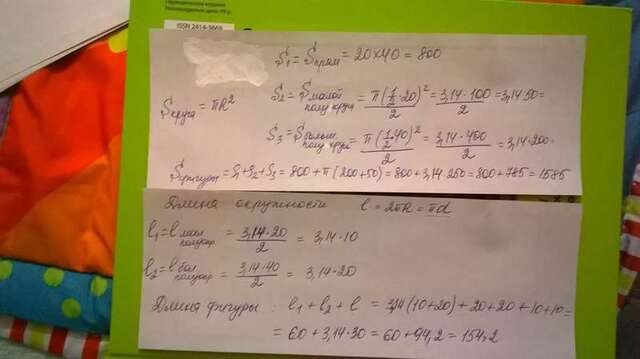 Периодическое издание
Рекомендуемая цена: 19 р.
ISSN 2414-3669
S₁ = Sпрям = 20×40 = 800
Sкруга = πR²
S₂ = Sмалой полукруга = π(1/2·20)²/2 = 3,14·100/2 = 3,14·50 =
S₃ = Sбольш полукруга = π(1/2·40)²/2 = 3,14·400/2 = 3,14·200 =
Sфигуры = S₁+S₂+S₃ = 800 + π(200+50) = 800+3,14·250 = 800+785 = 1585
Длина окружности l = 2πR = πd
l₁ = l мал полуокр = 3,14·20/2 = 3,14·10
l₂ = l бол полуокр = 3,14·40/2 = 3,14·20
Длина фигуры: l₁ + l₂ + l = 3,14(10+20)+20+20+10+10 =
= 60 + 3,14·30 = 60 + 94,2 = 154,2